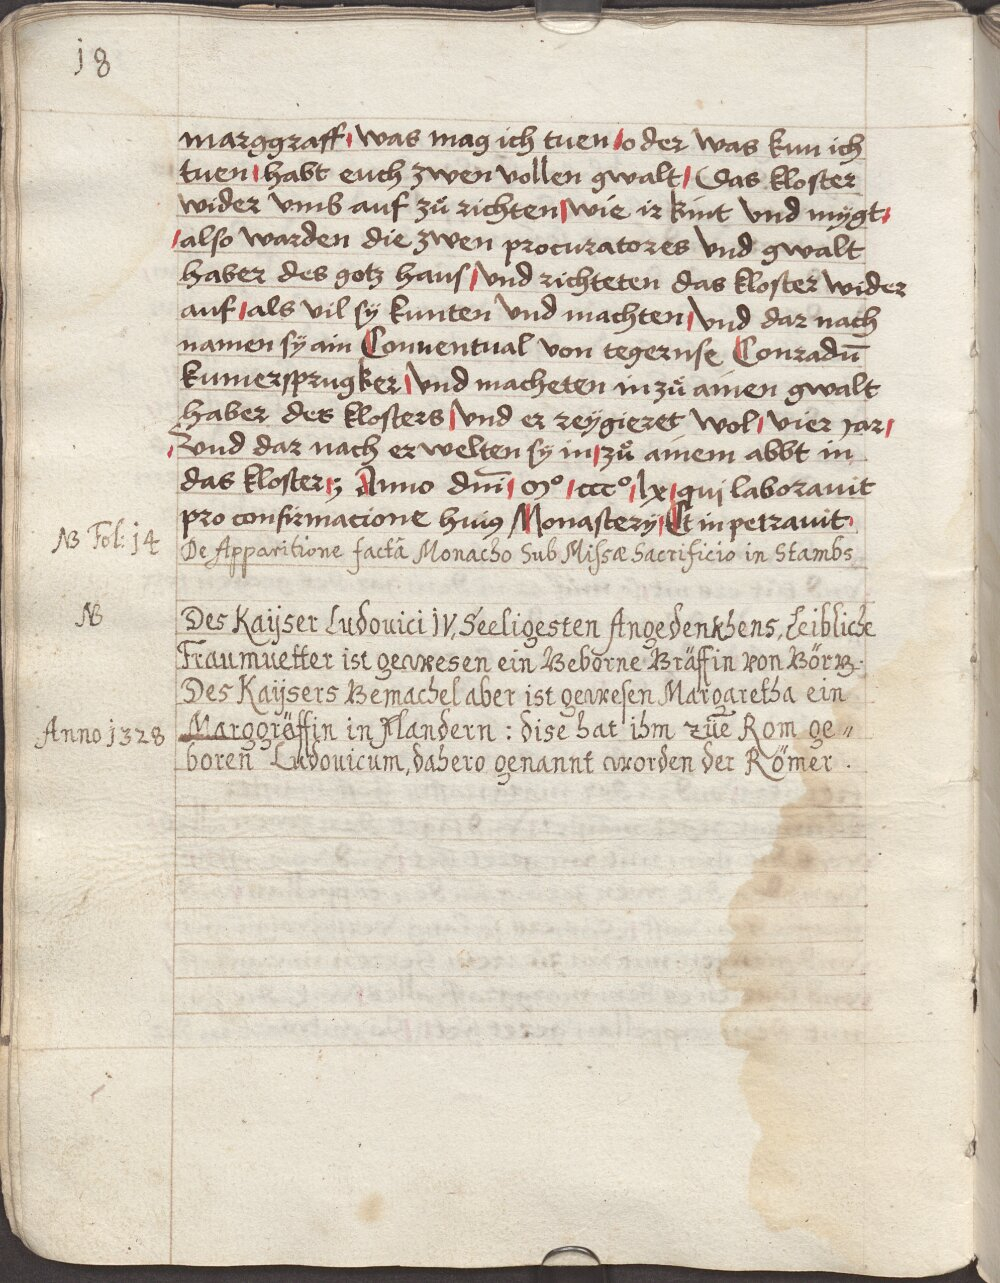 18
marggraff, was mag ich tuen, oder was kun ich
tuen, habt euch zwen vollen gwalt, Das kloster
wider vmb auf zů richten, wie ir kint vnd mygt,
also warden die zwen procuratores vnd gwalt
haber des gotz haus, vnd richteten das kloster wider
auf, als vil sy kunten vnd machten, vnd dar nach
namen sy ain Conuentual von tegernse Conradū
kumersprugker, vnd macheten in zů ainen gwalt
haber des klosters, vnd er reygieret wol, vier Jar,
vnd dar nach erwelten sy in, zů ainem abbt in
das kloster, Anno dm̄ Mº cccº lx, qui laborauit
pro confirmacione huiꝯ Monastery, Et inpetrauit.
NB Fol: 14
De Apparitione factâ Monacho Sub Missæ Sacrificio in Stambs
NB
Des Kaÿser Ludouici IV, Seeligesten Angedenkhens, Leibliche
Fraumuetter ist gewesen ein Geborne Gräffin von Görz.
Des Kaÿsers Gemachel aber ist gewesen Margaretha ein
Anno 1328
Marggräffin in Flandern : dise hat ihm zue Rom ge„
boren Ludouicum, dahero genannt worden der Römer .